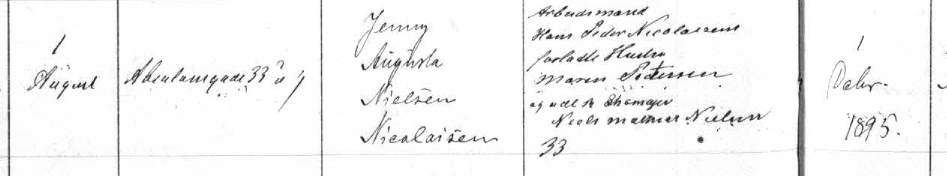 1
August
Absalonsgade 33
Jenny
Augusta
Nielsen
Nicolaisen
Arbeidsmand
Hans Peder Nicolaisens
fradelte Hustru
Maren Pedersen
og udl B
Niels Nielsen
33
1
Debr.
1895.